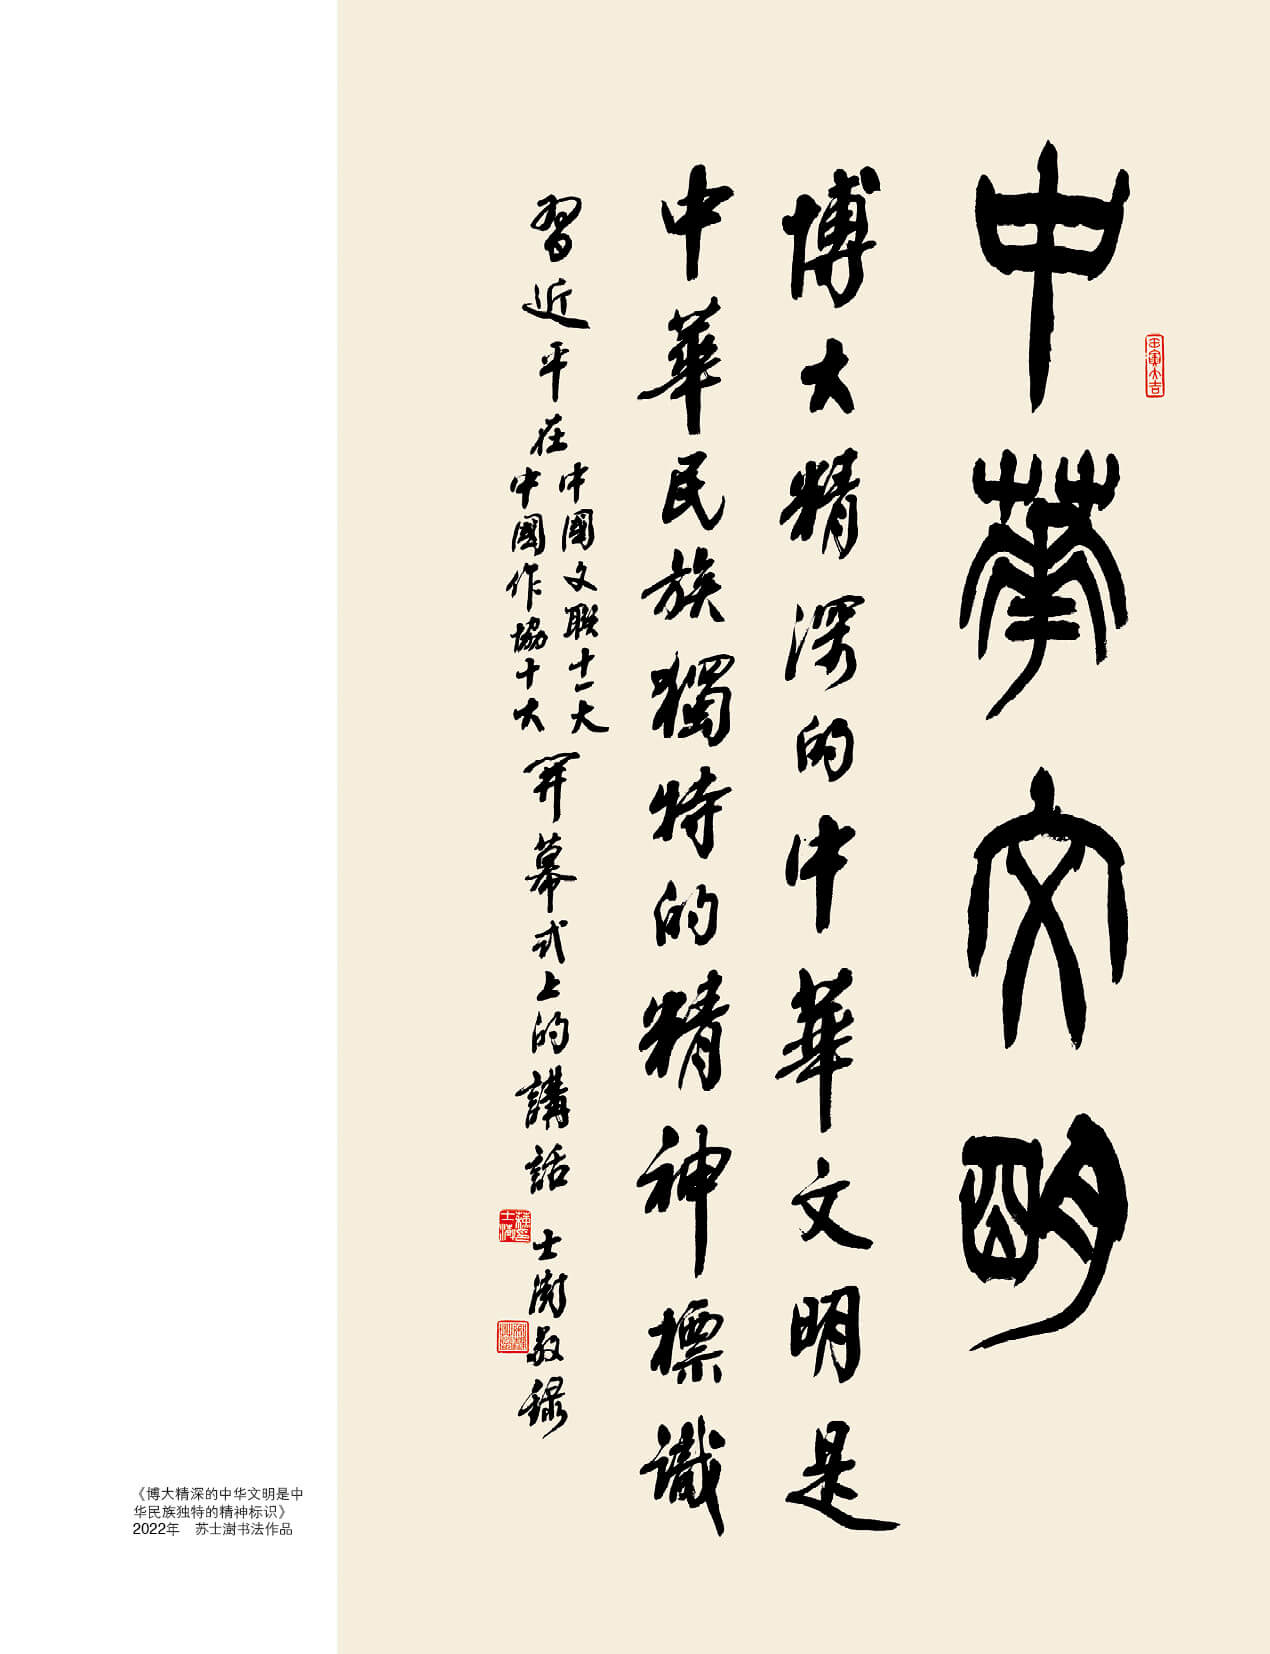 中華文明
博大精深的中華文明是
中華民族獨特的精神標識
習近平在
中國文聯十一大
中國作協十大
開幕式上的講話 士澍敬錄
壬寅大吉
《博大精深的中华文明是中
华民族独特的精神标识》
2022年 苏士澍书法作品